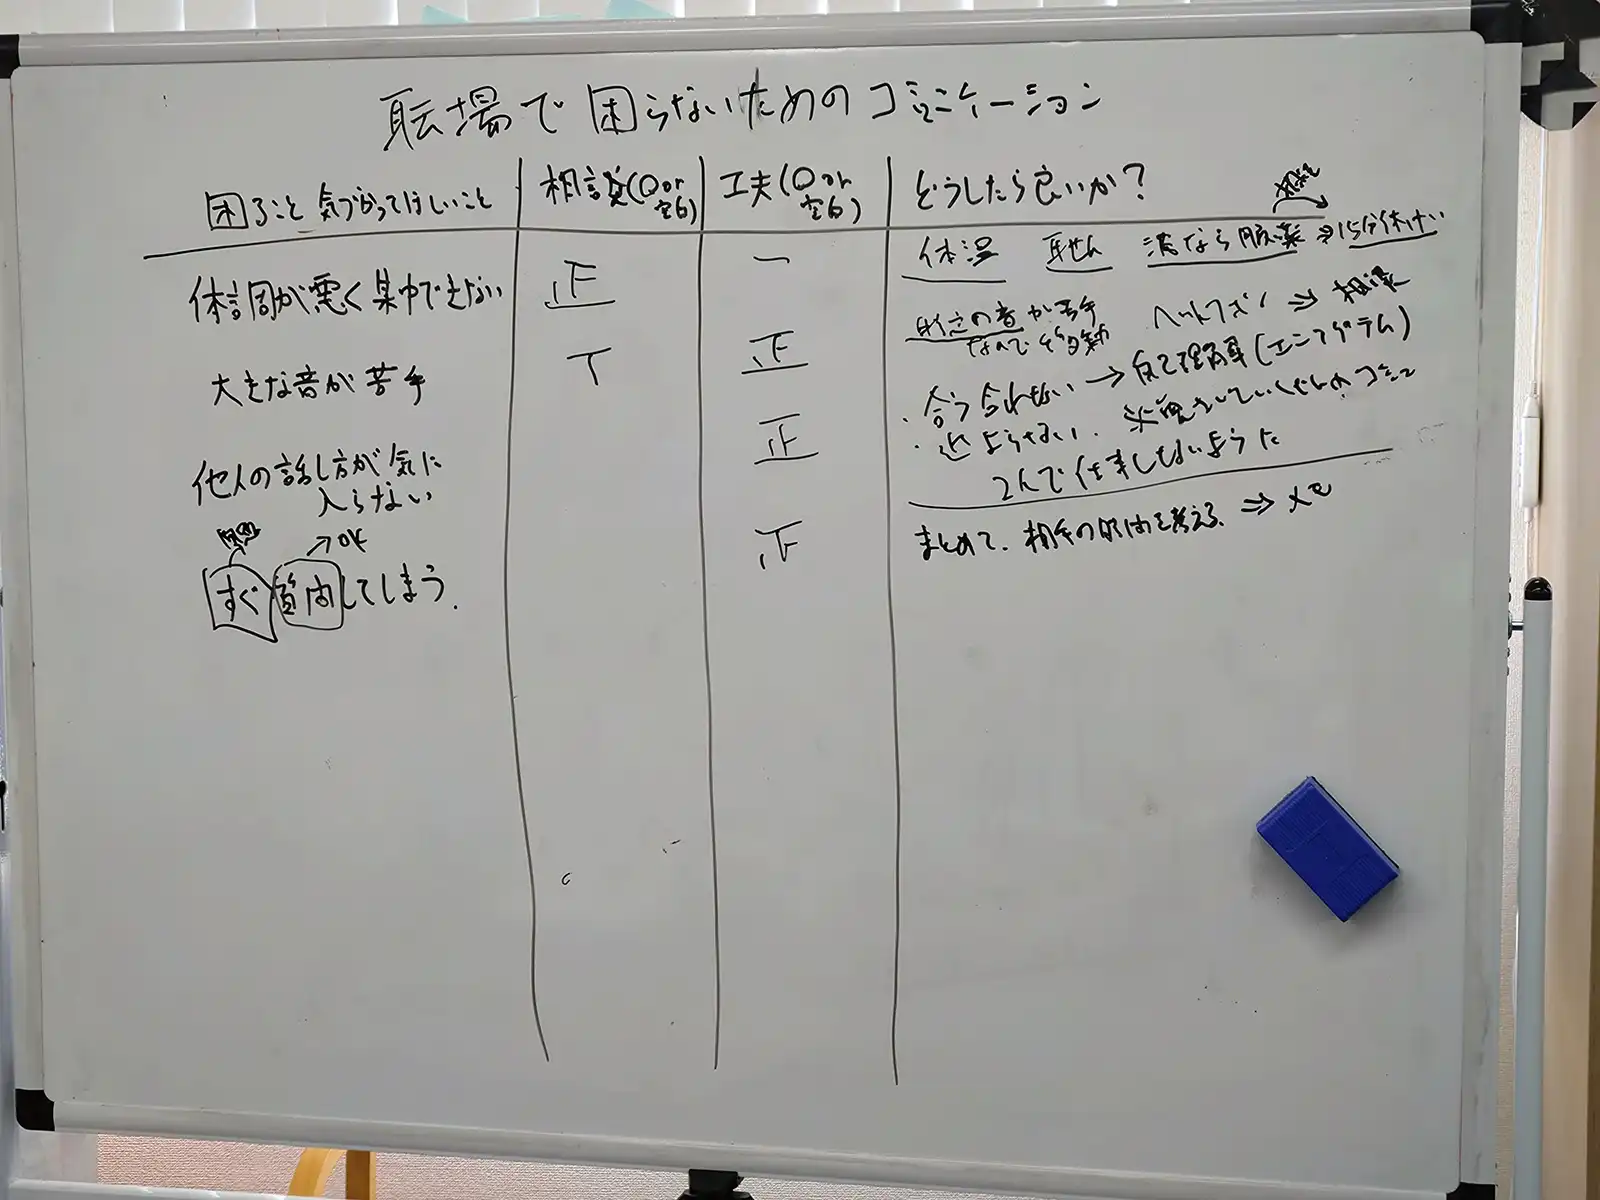 職場で困らないためのコミュニケーション
困ること 気づかってほしいこと
相談(○or空白)
工夫(○or空白)
どうしたら良いか?
体調が悪く集中できない
正
一
体温 耳せん 済なら服薬 ⇒15分休けい
相談
大きな音が苦手
T
正
特定の音が苦手
なので ヘッドフォン ⇒ 相談
他人の話し方が気に
入らない
正
・合う合わない → 自己理解(エニアグラム)
・近よらない.
2人で仕事しないように
すぐ質問してしまう.
→OK
正
まとめて、相手の時間を考える ⇒ メモ